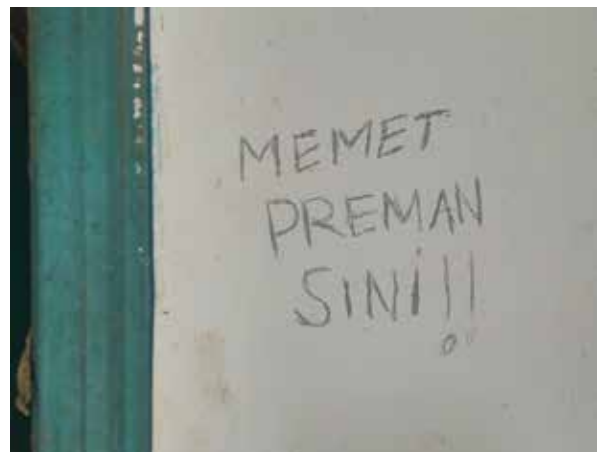 MEMET
PREMAN
SINi!!